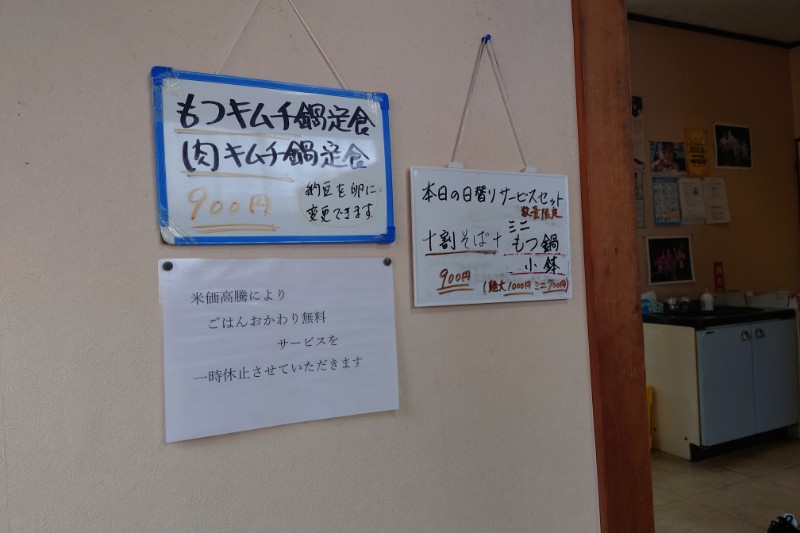 もつキムチ鍋定食
肉キムチ鍋定食
900円
納豆を卵に
変更できます
米価高騰により
ごはんおかわり無料
サービスを
一時休止させていただきます
本日の日替りサービスセット
数量限定
十割そば+ミニもつ鍋
小鉢
900円
(麺大1000円 ミニ700円)